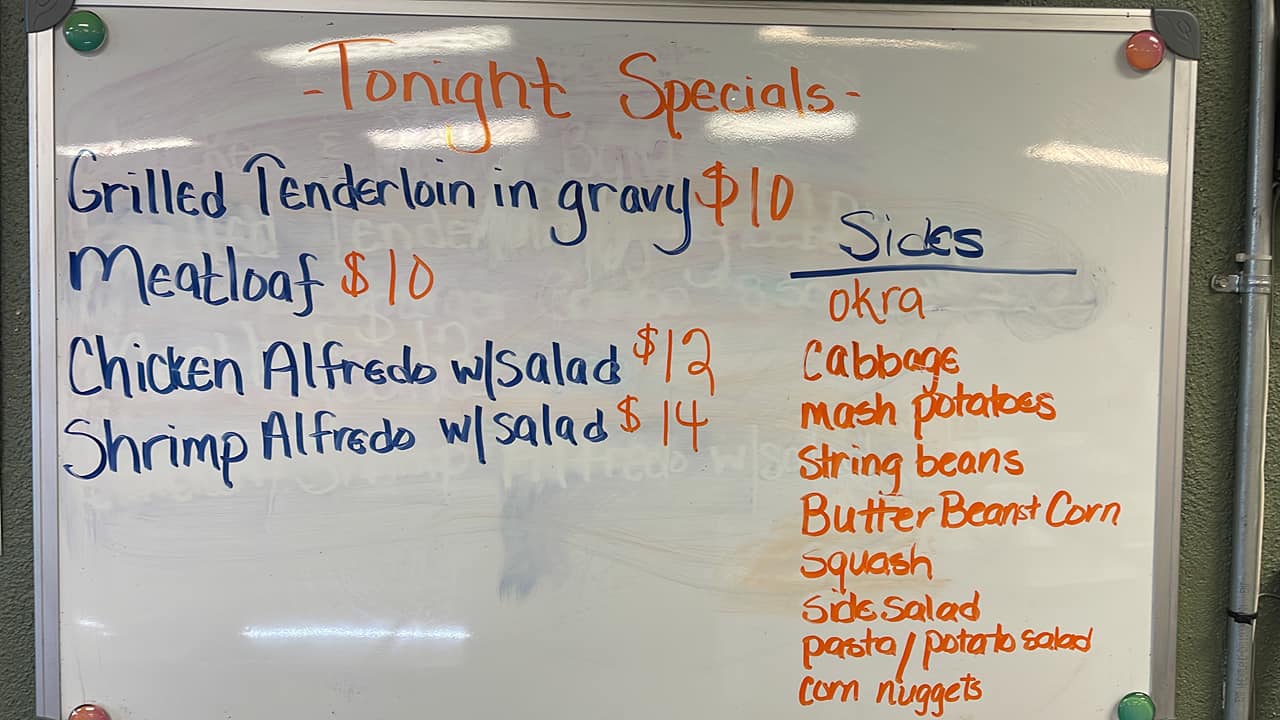 -Tonight Specials-
Grilled Tenderloin in gravy $10
Meatloaf $10
Chicken Alfredo w/salad $12
Shrimp Alfredo w/salad $14
Sides
okra
Cabbage
mash potatoes
String beans
Butter Beans+ Corn
squash
side salad
pasta/potato salad
corn nuggets